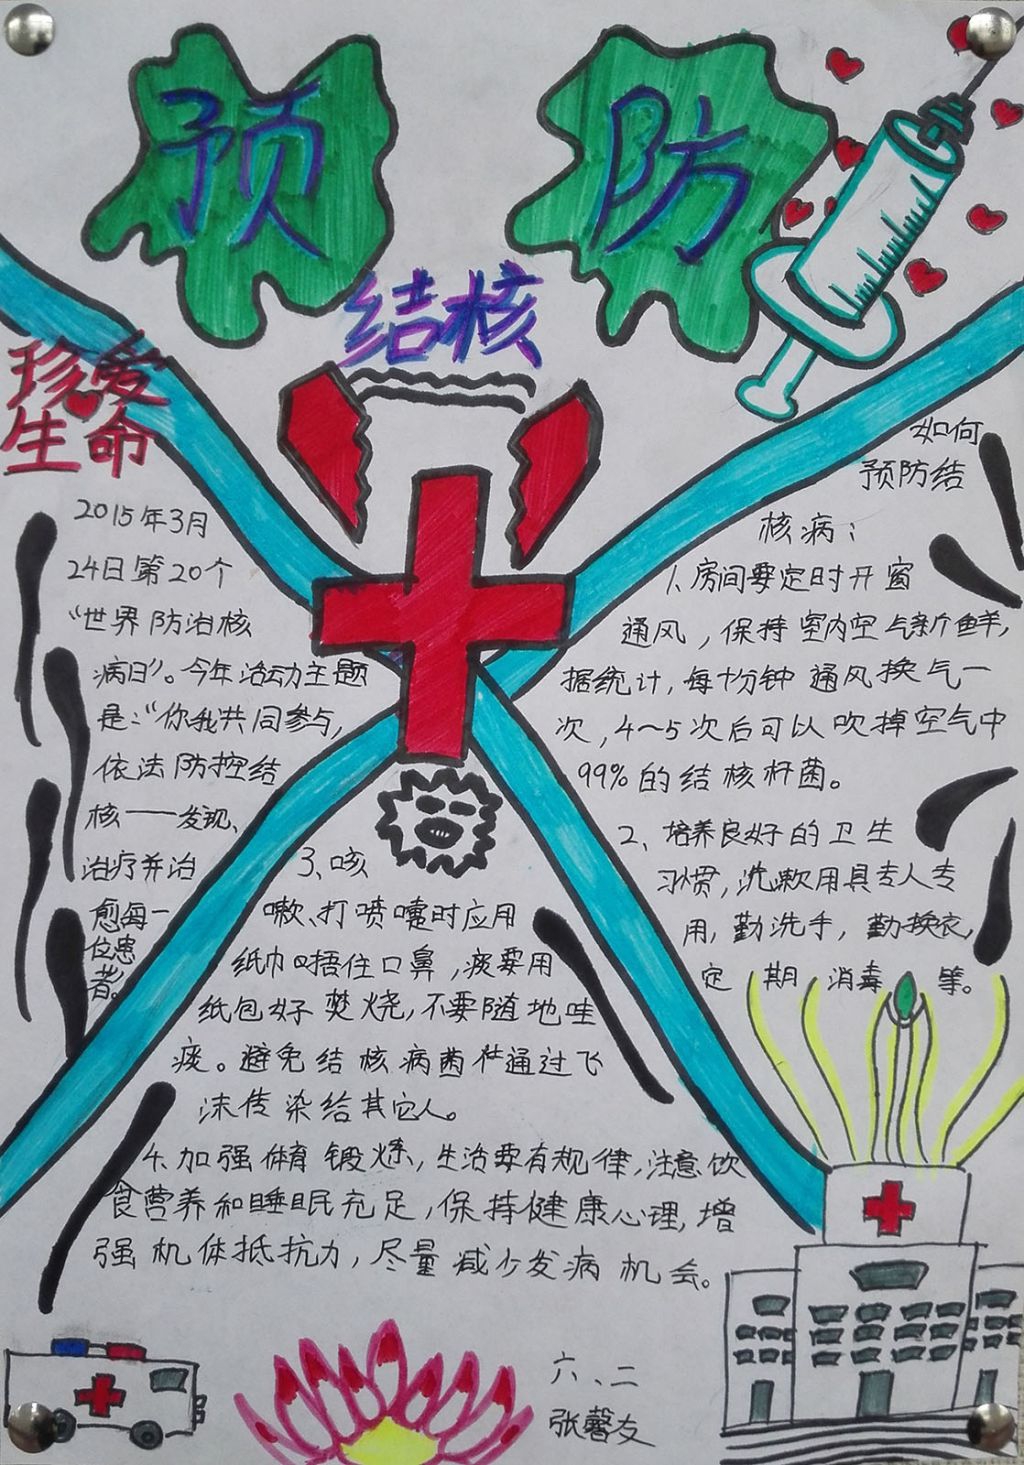 预防
结核
珍爱
生命
2015年3月
24日第20个
“世界防治核
病日”。今年活动主题
是：“你我共同参与，
依法防控结
核——发现、
治疗并治
愈每一
位患
者。
如何
预防结
核病：
1、房间要定时开窗
通风，保持室内空气新鲜，
据统计，每十分钟通风换气一
次，4~5次后可以吹掉空气中
99%的结核杆菌。
2、培养良好的卫生
习惯，洗漱用具专人专
用，勤洗手，勤换衣，
定期消毒等。
3、咳
嗽、打喷嚏时应用
纸巾捂住口鼻，痰要用
纸包好焚烧，不要随地哇
痰。避免结核病菌通过飞
沫传染给其它人。
4、加强体育锻炼，生活要有规律，注意饮
食营养和睡眠充足，保持健康心理，增
强机体抵抗力，尽量减少发病机会。
六、二
张馨友